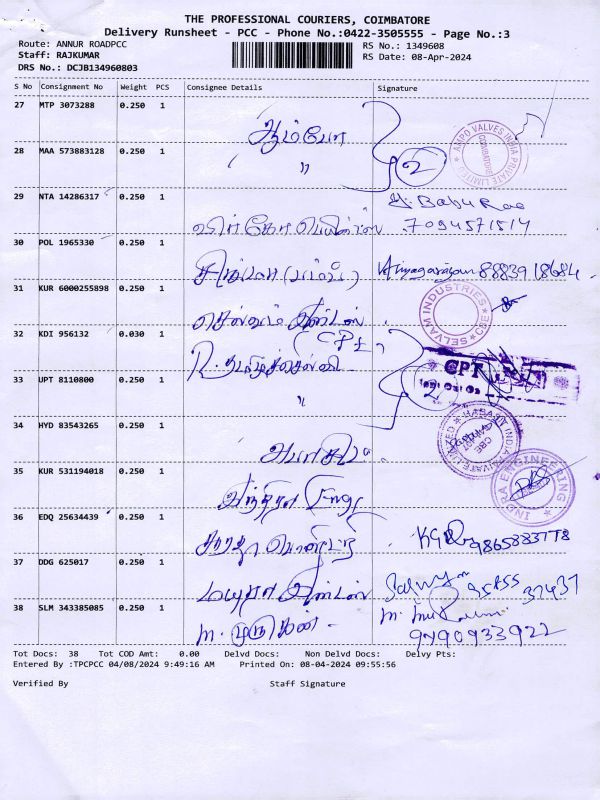 THE PROFESSIONAL COURIERS, COIMBATORE
Delivery Runsheet - PCC - Phone No.:0422-3505555 - Page No.:3
Route: ANNUR ROADPCC RS No.: 1349608
Staff: RAJKUMAR RS Date: 08-Apr-2024
DRS No.: DCJB134960803
S No Consignment No Weight PCS Consignee Details Signature
27 MTP 3073288 0.250 1
ஆம்போ
28 MAA 573883128 0.250 1
" 2
AMPO VALVES INDIA PRIVATE LIMITED COIMBATORE
29 NTA 14286317 0.250 1
Babu Rao
7094571514
30 POL 1965330 0.250 1
8883918684
31 KUR 6000255898 0.250 1
SELVAM INDUSTRIES CBE
செல்வம் இன்டஸ்
32 KDI 956132 0.030 1
(CPT)
R. தமிழ்ச்செல்வி
CPT
33 UPT 8110800 0.250 1
" 2
34 HYD 83543265 0.250 1
HABASIT INDIA PRIVATE LIMITED CBE
35 KUR 531194018 0.250 1
இந்திரா Engg
INDRA ENGINEERING
36 EDQ 25634439 0.250 1
சாரதா பெயிண்ட்
9865883778
37 DDG 625017 0.250 1
மயூரா இன்டஸ்
95855 37437
38 SLM 343385085 0.250 1
m. முருகன்
9790933922
Tot Docs: 38 Tot COD Amt: 0.00 Delvd Docs: Non Delvd Docs: Delvy Pts:
Entered By :TPCPCC 04/08/2024 9:49:16 AM Printed On: 08-04-2024 09:55:56
Verified By Staff Signature